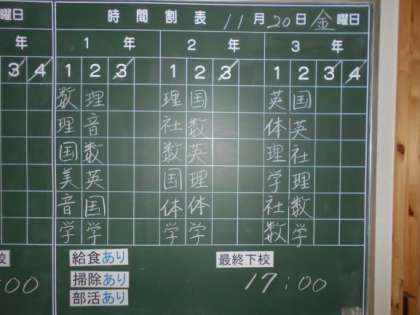 火曜日 時間割表 11月20日金曜日
年 1年 2年 3年
3 4 1 2 3 1 2 3 1 2 3 4
数 理 理 国 英 国
理 音 社 数 体 英
国 数 数 英 理 社
美 英 国 理 学 理
音 国 体 体 社 数
学 学 学 学 数 学
校 給食あり 最終下校
:00 掃除あり 17:00
部活あり